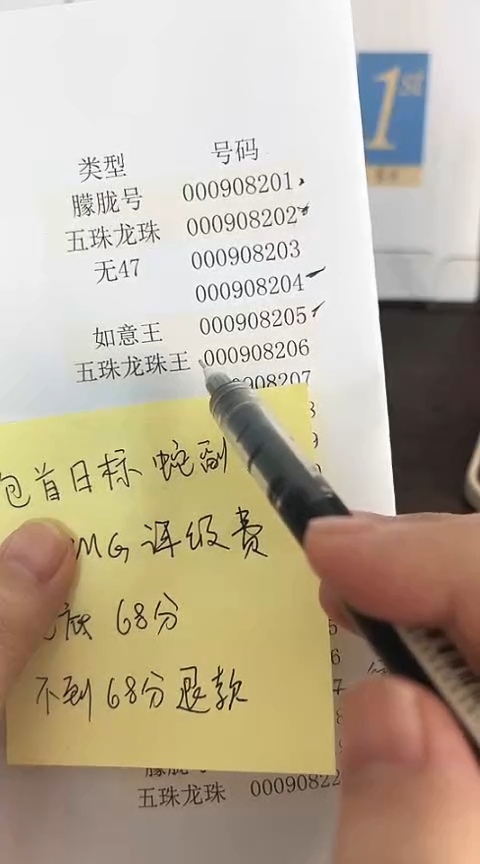 1st
类型 号码
朦胧号 000908201
五珠龙珠 000908202
无47 000908203
000908204
如意王 000908205
五珠龙珠王 000908206
000908207
包首日标 蛇副
MG 评级费
底 68分
不到68分退款
五珠龙珠 00090822